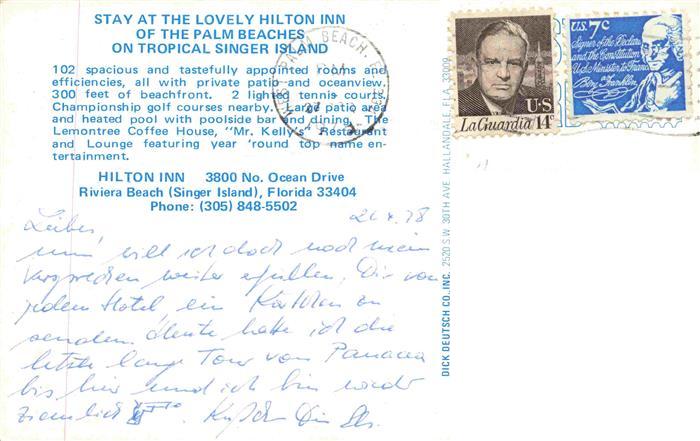 STAY AT THE LOVELY HILTON INN
OF THE PALM BEACHES
ON TROPICAL SINGER ISLAND
102 spacious and tastefully appointed rooms and
efficiencies, all with private patio and oceanview.
300 feet of beachfront. 2 lighted tennis courts.
Championship golf courses nearby. Large patio area
and heated pool with poolside bar and dining. The
Lemontree Coffee House, "Mr. Kelly's" Restaurant
and Lounge featuring year 'round top name en-
tertainment.
HILTON INN 3800 No. Ocean Drive
Riviera Beach (Singer Island), Florida 33404
Phone: (305) 848-5502
Lieber, 78
nun will ich doch noch mein
Versprechen weiter erfüllen, Dir von
jedem Hotel ein Kärtchen zu
senden. Heute hatte ich die
letzte lange Tour von Panacea
bis hier und ich bin wieder
ziemlich Dein
DICK DEUTSCH CO., INC. 2520 S.W. 30TH AVE. HALLANDALE, FLA. 33009
PALM BEACH, F
La Guardia U·S 14c
U.S. 7c
Signer of the Declara
and the Constitution
U.S. Minister to France
Benj. Franklin